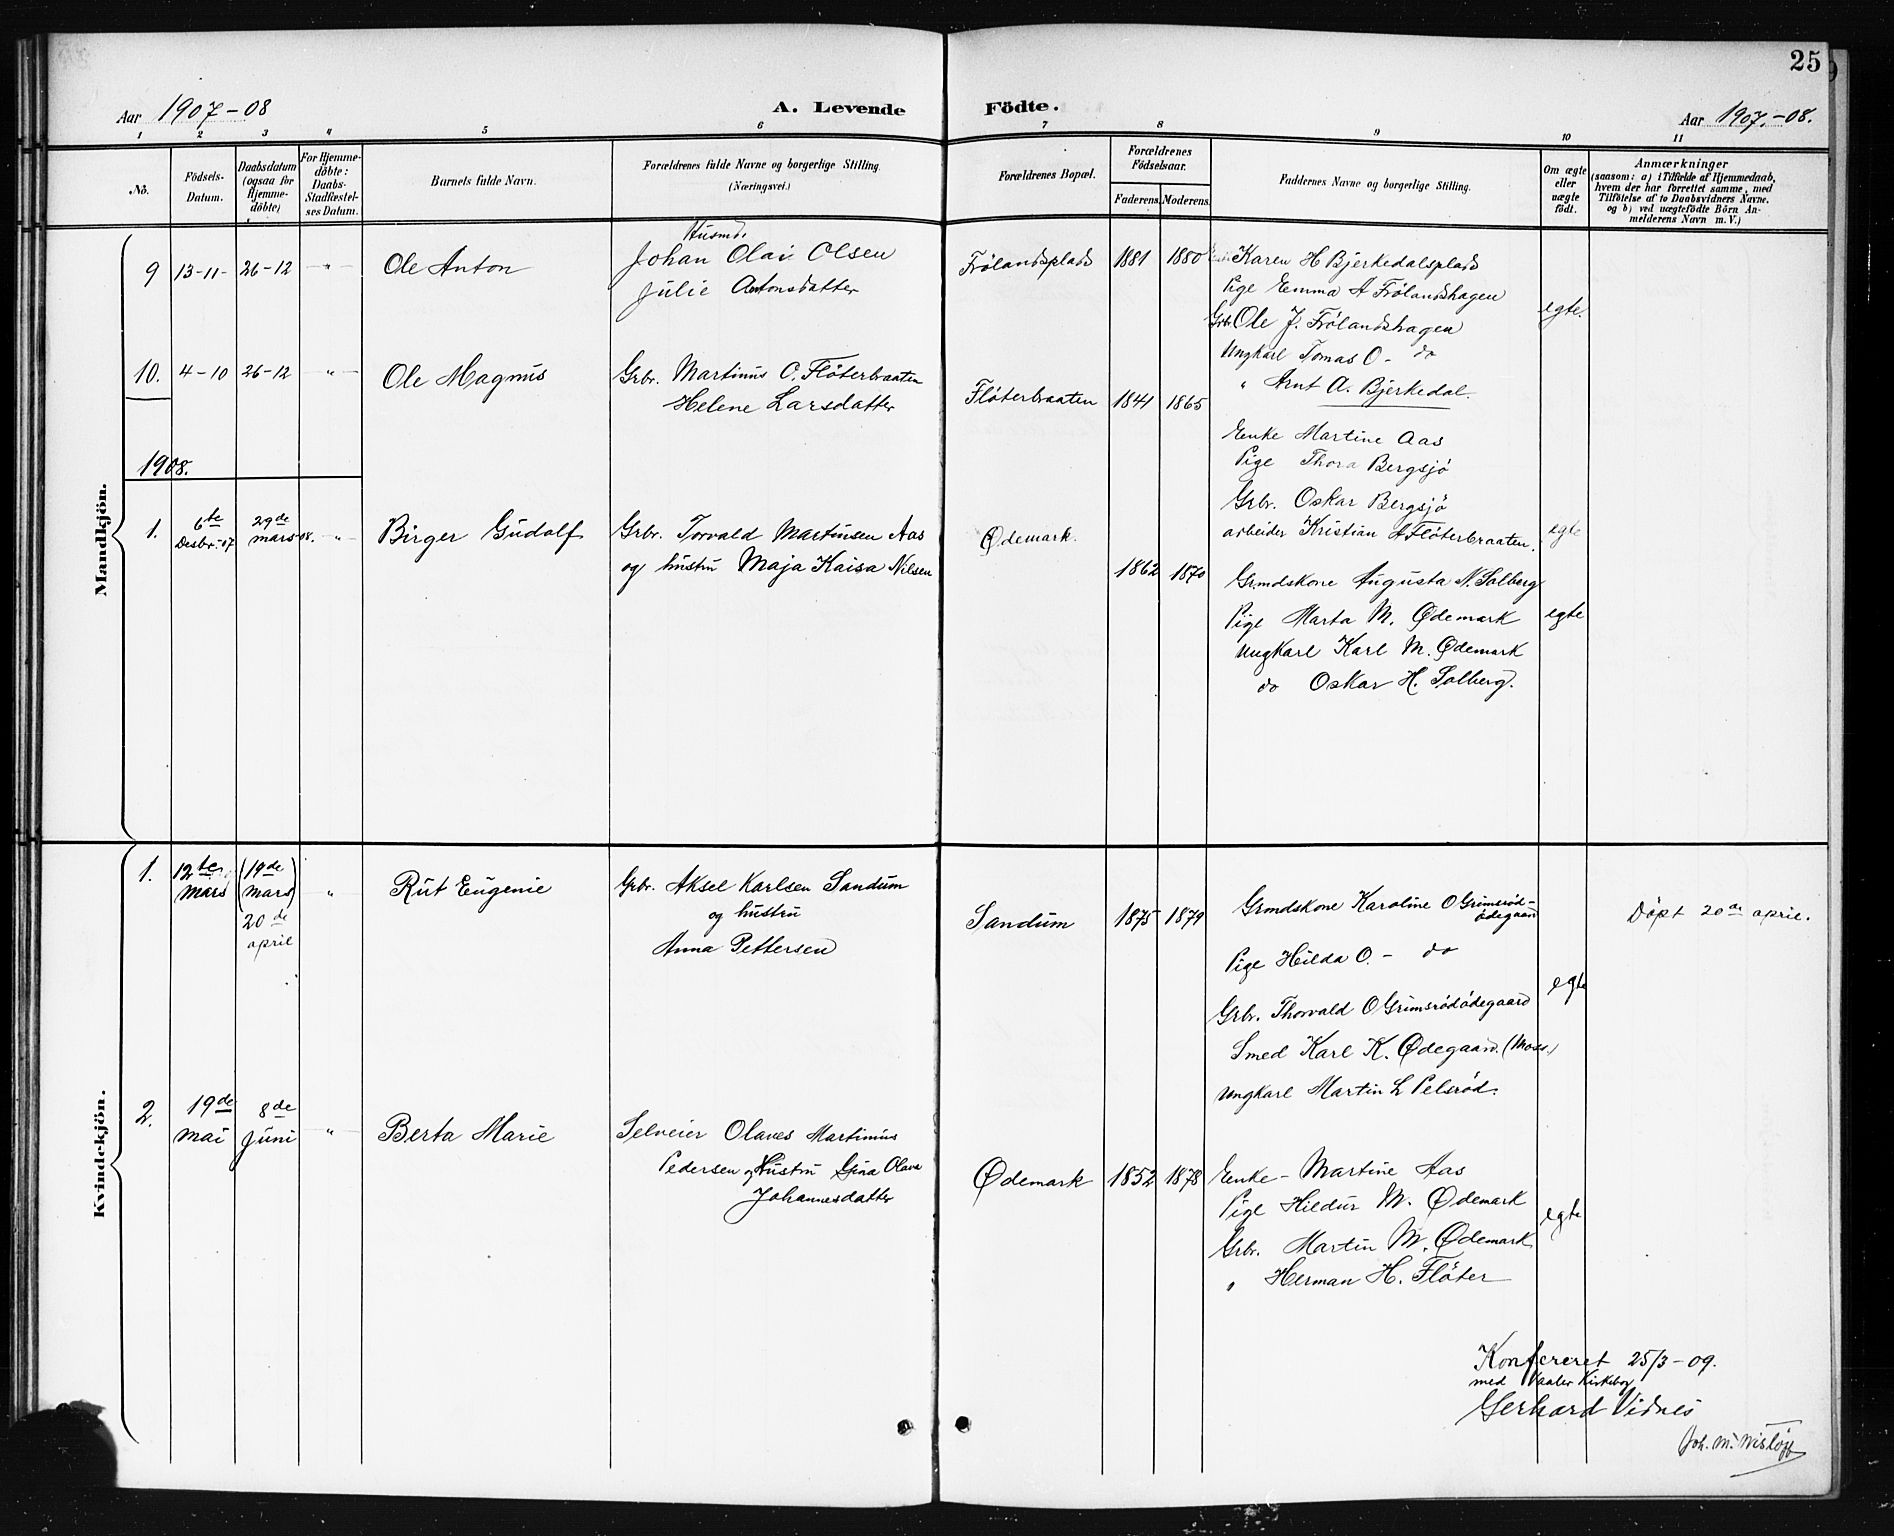 25
Aar 1907-08
A. Levende Födte.
Aar 1907.-08.
1 2 3 4 5 6 7 8 9 10 11
No.
Födsels-Datum.
Daabsdatum (ogsaa for Hjemme-döbte)
For Hjemme-döbte: Daabs-Stadfæstel-ses Datum.
Barnets fulde Navn.
Forældrenes fulde Navne og borgerlige Stilling.
(Næringsvei.)
Forældrenes Bopæl.
Forældrenes Födselsaar.
Faderens. Moderens.
Faddernes Navne og borgerlige Stilling.
Om ægte eller uægte födt.
Anmærkninger
(saasom: a) i Tilfælde af Hjemmedaab,
hvem der har forrettet samme, med
Tilföielse af to Daabsvidners Navne.
og b) ved uægtefödte Börn An-
melderens Navn m. V.)
Mandkjön.
9 13-11- 26-12 -"- Ole Anton
Husmd.
Johan Olai Olsen
Julie Antonsdatter
Frölandsplads 1881 1880
Karen H Bjerkedalsplads
Pige Emma A Frölandshagen
Grbr. Ole J. Frölandshagen
Ungkarl Tomas O - do
" Arnt A. Bjerkedal.
egte.
10. 4-10 26-12 -"- Ole Magnus
Grbr. Martinus O. Flöterbraaten
Helene Larsdatter
Flöterbraaten 1841 1865
Enke Martine Aas
Pige Thora Bergsjö
Grbr. Oskar Bergsjö
arbeider Kristian A Flöterbraaten.
egte
1908.
1. 6te Desbr.-07 29de mars 08. -"- Birger Gudolf
Grbr. Torvald Martinsen Aas
og hustru Maja Kaisa Nilsen
Ødemark. 1862 1870
Grmdskone Augusta N. Solberg
Pige Marta M. Ødemark
Ungkarl Karl M. Ødemark
do Oskar H. Solberg.
egte
Kvindekjön.
1. 12te mars (19de mars) 20de april -"- Rut Eugenie
Grbr. Aksel Karlsen Sandum
og hustru
Anna Pettersen
Sandum 1875 1879
Grmdskone Karoline O Grimsröd-
ödegaard
Pige Hilda O. - do
Grbr. Thorvald O Grimsrödödegaard
Smed Karl K. Ødegaard. (Moss.)
Ungkarl Martin L Pelsröd.
egte
Döpt 20de april.
2. 19de mai 8de juni -"- Berta Marie
Selveier Olaves Martinius
Pedersen og Hustru Gina Olava
Johannesdatter
Ødemark 1852 1878
Enke - Martine Aas
Pige Hildur M. Ødemark
Grbr. Martin M. Ødemark
" Herman H. Flöter
egte
Konfereret 25/3-09.
med Vaaler Kirkebog
Gerhard Vidnes
Joh. M.